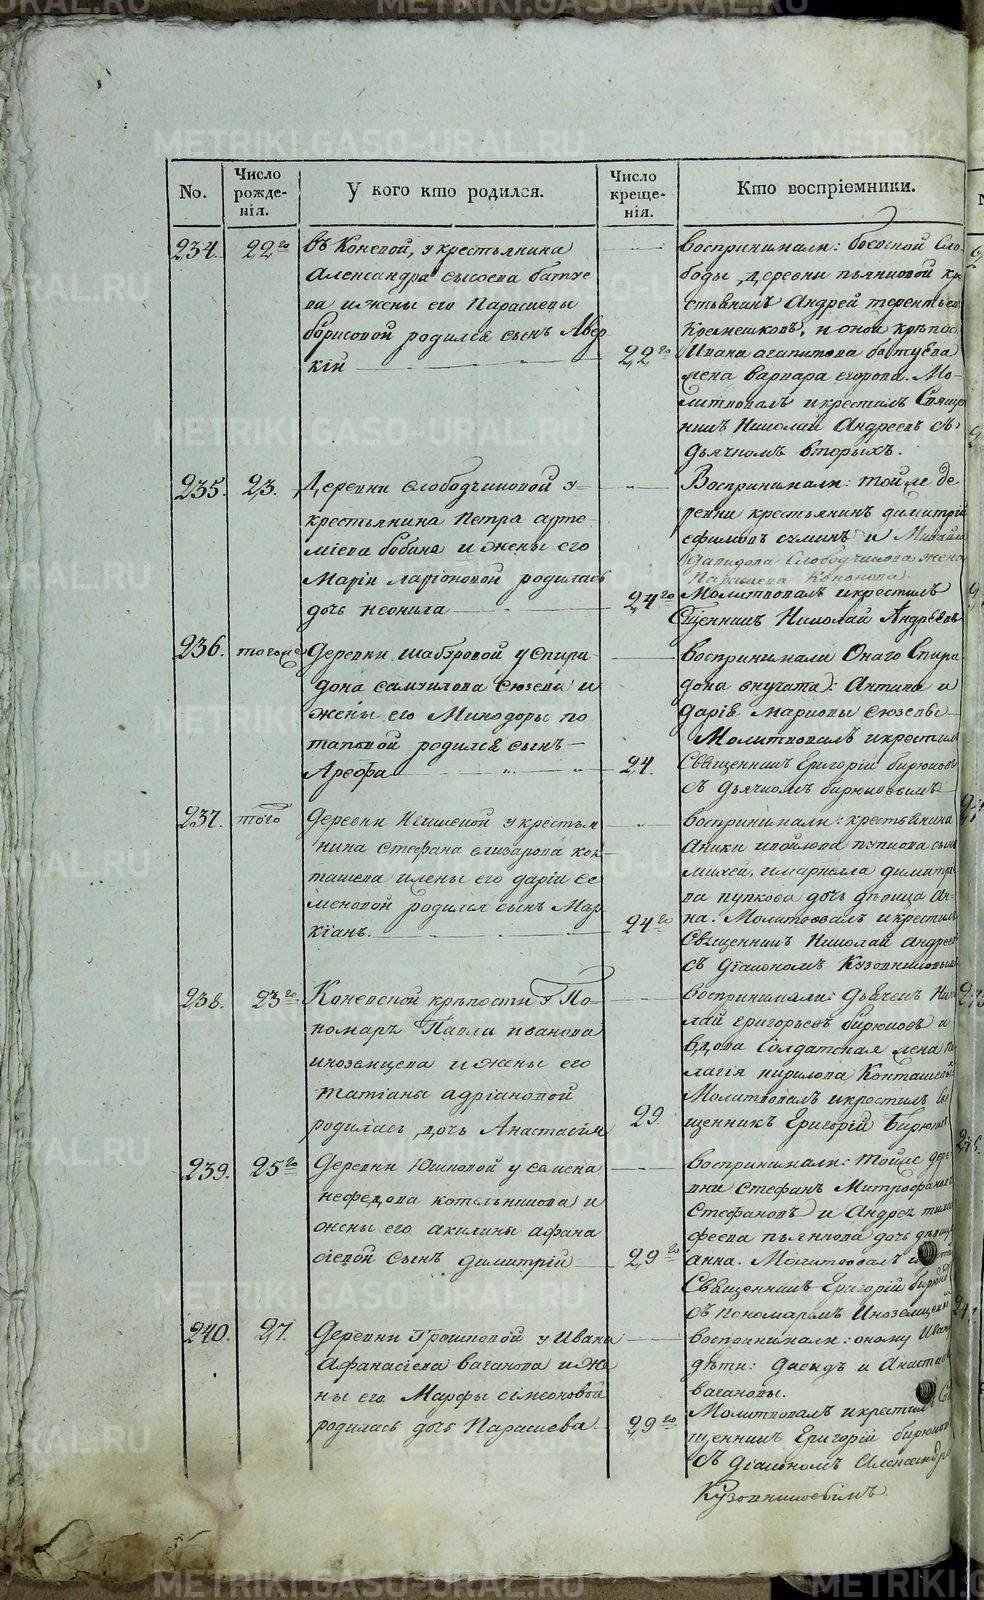 No.
Число рожде-нія.
У кого кто родился.
Число креще-нія.
Кто воспріемники.
234.
22го
въ Коневой, у крестьянина
Александра сысоева батуе
ва и жены его Парасковьи
борисовой родился сынъ Авер
кій
22го
Воспринимали: боевской Сло
боды, деревни пьянковой кре
стьянинъ Андрей терентьев
и оной крѣпос
Ивана агапитова батуева
жена варвара егорова. Мо-
литвовалъ и крестилъ Священ
никъ Николай Андреевъ съ
дьячкомъ вторыхъ.
235.
23.
Деревни слободчиковой у
крестьянина Петра арте
міева бабина и жены его
Маріи ларіоновой родилась
дочь неонила
24го
Воспринимали: той же де
ревни крестьянинъ димитрій
ефимовъ и Михайла
давидова Слободчикова жена
Параскева Кононова.
Молитвовалъ и крестилъ
Священникъ Николай Андреевъ
236.
тогоже
Деревни шабуровой у Спири
дона самуилова сюзева и
жены его Минодоры по
таповой родился сынъ
Арефа
24.
воспринимали Онаго Спири
дона внучата: Антипа и
дарія марковы сюзевы
Молитвовалъ и крестилъ
Священникъ Григорій бирюковъ
съ дьячкомъ бирюковымъ
237.
того
деревни у крестья
нина стефана елизарова кон
ташева и жены его даріи се
меновой родился сынъ Мар
кіанъ.
24го
воспринимали: крестьянина
Аники пупкова сынъ
михей, димитрі
ва пупкова дочь дѣвица ан-
на. Молитвовалъ и крестилъ
Священникъ Николай андреев
съ діакономъ Кузовниковымъ
238.
23го
Коневской крѣпости У По-
номаря Павла иванова
иноземцева и жены его
татіаны адріановой
родилась дочь Анастасія
29
воспринимали: дьячекъ Нико
лай григорьевъ бирюковъ и
вдова солдатская жена пе
лагія кирилова Конташева
Молитвовалъ и крестилъ Свя
щенникъ Григорій Бирюков
239.
25го
Деревни Юшковой у семена
нефедова котельникова и
жены его акилины афана
сіевой сынъ димитрій
29го
воспринимали: тойже дере
вни Стефанъ Митрофановъ
Стефановъ и Андрея тимо
феева пьянкова дочь дѣвица
анна. Молитвовалъ и
Священникъ Григорій бирюков
съ пономаремъ Иноземцевы
240.
27.
Деревни Грошковой у Ивана
Афанасіева ваганова и же
ны его Марфы симеоновой
родилась дочь Параскева.
29го
воспринимали: оному Иван
дѣти: давидъ и Анастас
вагановы.
Молитвовалъ и крестилъ Свя
щенникъ Григорій бирюков
съ діакономъ Александро
Кузовниковымъ.